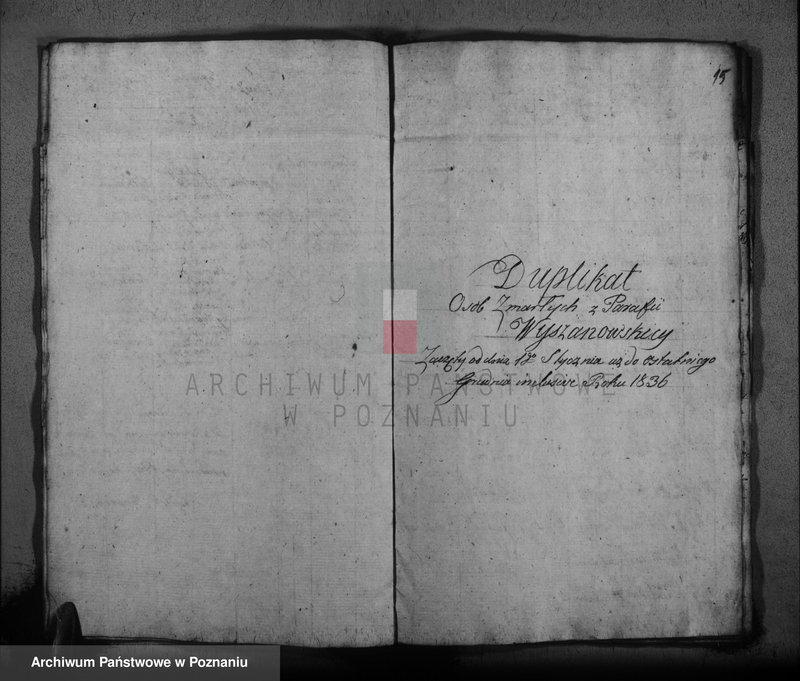 15
Duplikat
Osob Zmarłych z Parafii
Wyszanowskiey
Zaczęty od dnia 1go Stycznia aż do ostatniego
Grudnia inclusive Roku 1836
ARCHIWUM PAŃSTWOWE
W POZNANIU
Archiwum Państwowe w Poznaniu